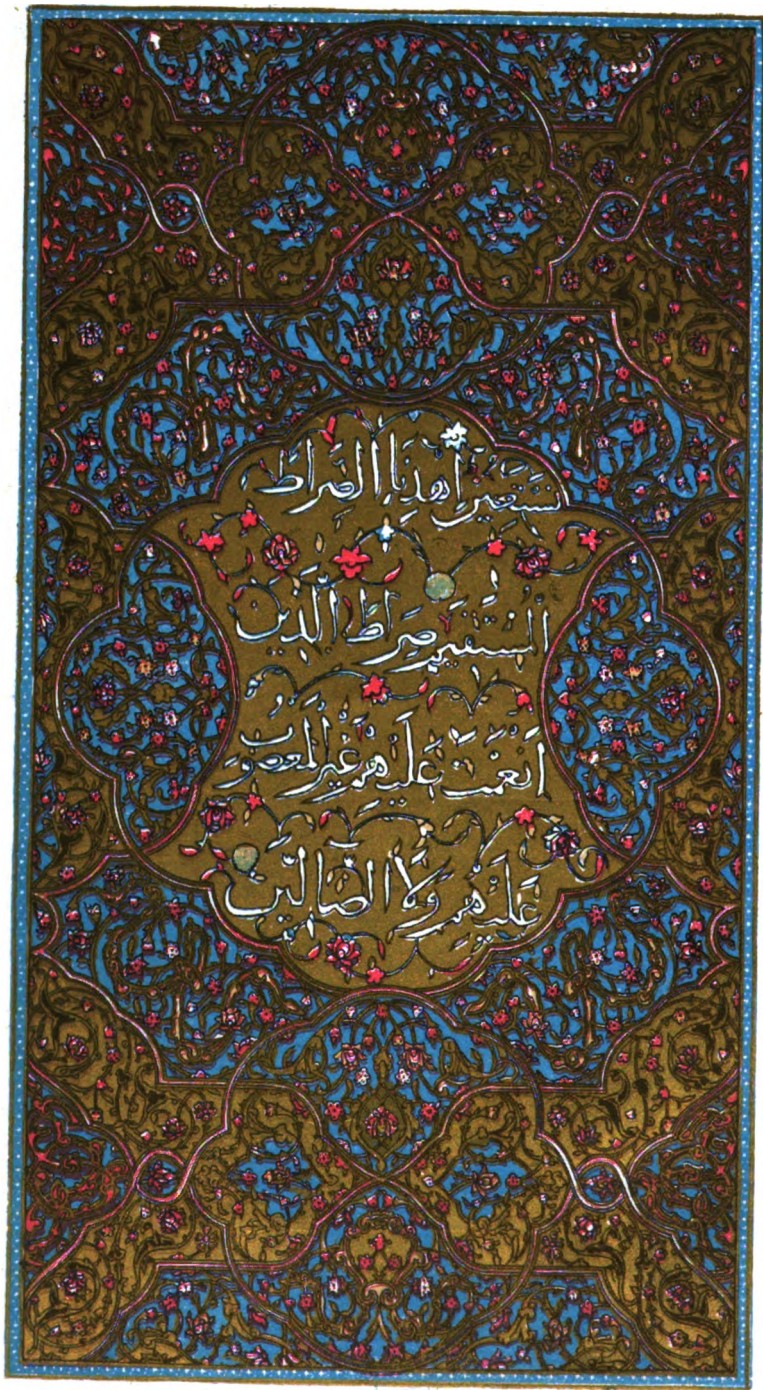 نَسْتَعِينُ اِهْدِنَا الصِّرَاطَ
الْمُسْتَقِيمَ صِرَاطَ الَّذِينَ
اَنْعَمْتَ عَلَيْهِمْ غَيْرِ الْمَغْضُوبِ
عَلَيْهِمْ وَلَا الضَّالِّينَ